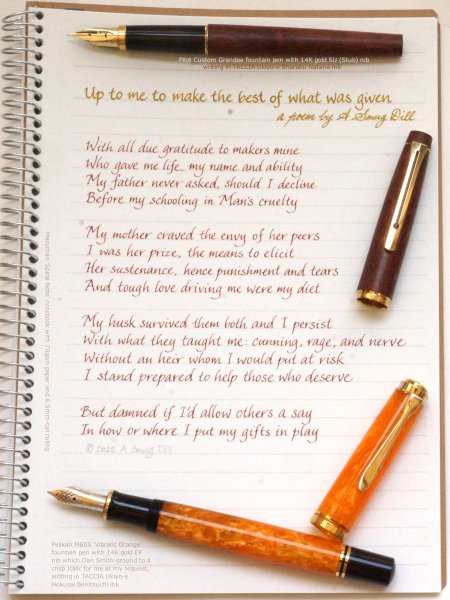 Pilot Custom Grandee fountain pen with 14K gold SU (Stub) nib
writing in TACCIA Ukiyo-e Sharaku Kutani ink
Up to me to make the best of what was given
a poem by A Smug Dill
With all due gratitude to makers mine
Who gave me life, my name and ability
My father never asked, should I decline
Before my schooling in Man's cruelty
My mother craved the envy of her peers
I was her prize, the means to elicit
Her sustenance, hence punishment and tears
And tough love driving me were my diet
My husk survived them both and I persist
With what they taught me: cunning, rage, and nerve
Without an heir whom I would put at risk
I stand prepared to help those who deserve
But damned if I'd allow others a say
In how or where I put my gifts in play
© 2025 A Smug Dill
notebook with 70gsm paper and 6.5mm-tall ruling
Pelikan M600 'Vibrant Orange'
fountain pen with 14K gold EF
nib which Dan Smith ground to a
crisp Italic for me at my request,
writing in TACCIA Ukiyo-e
Hokusai Benitsuchi ink